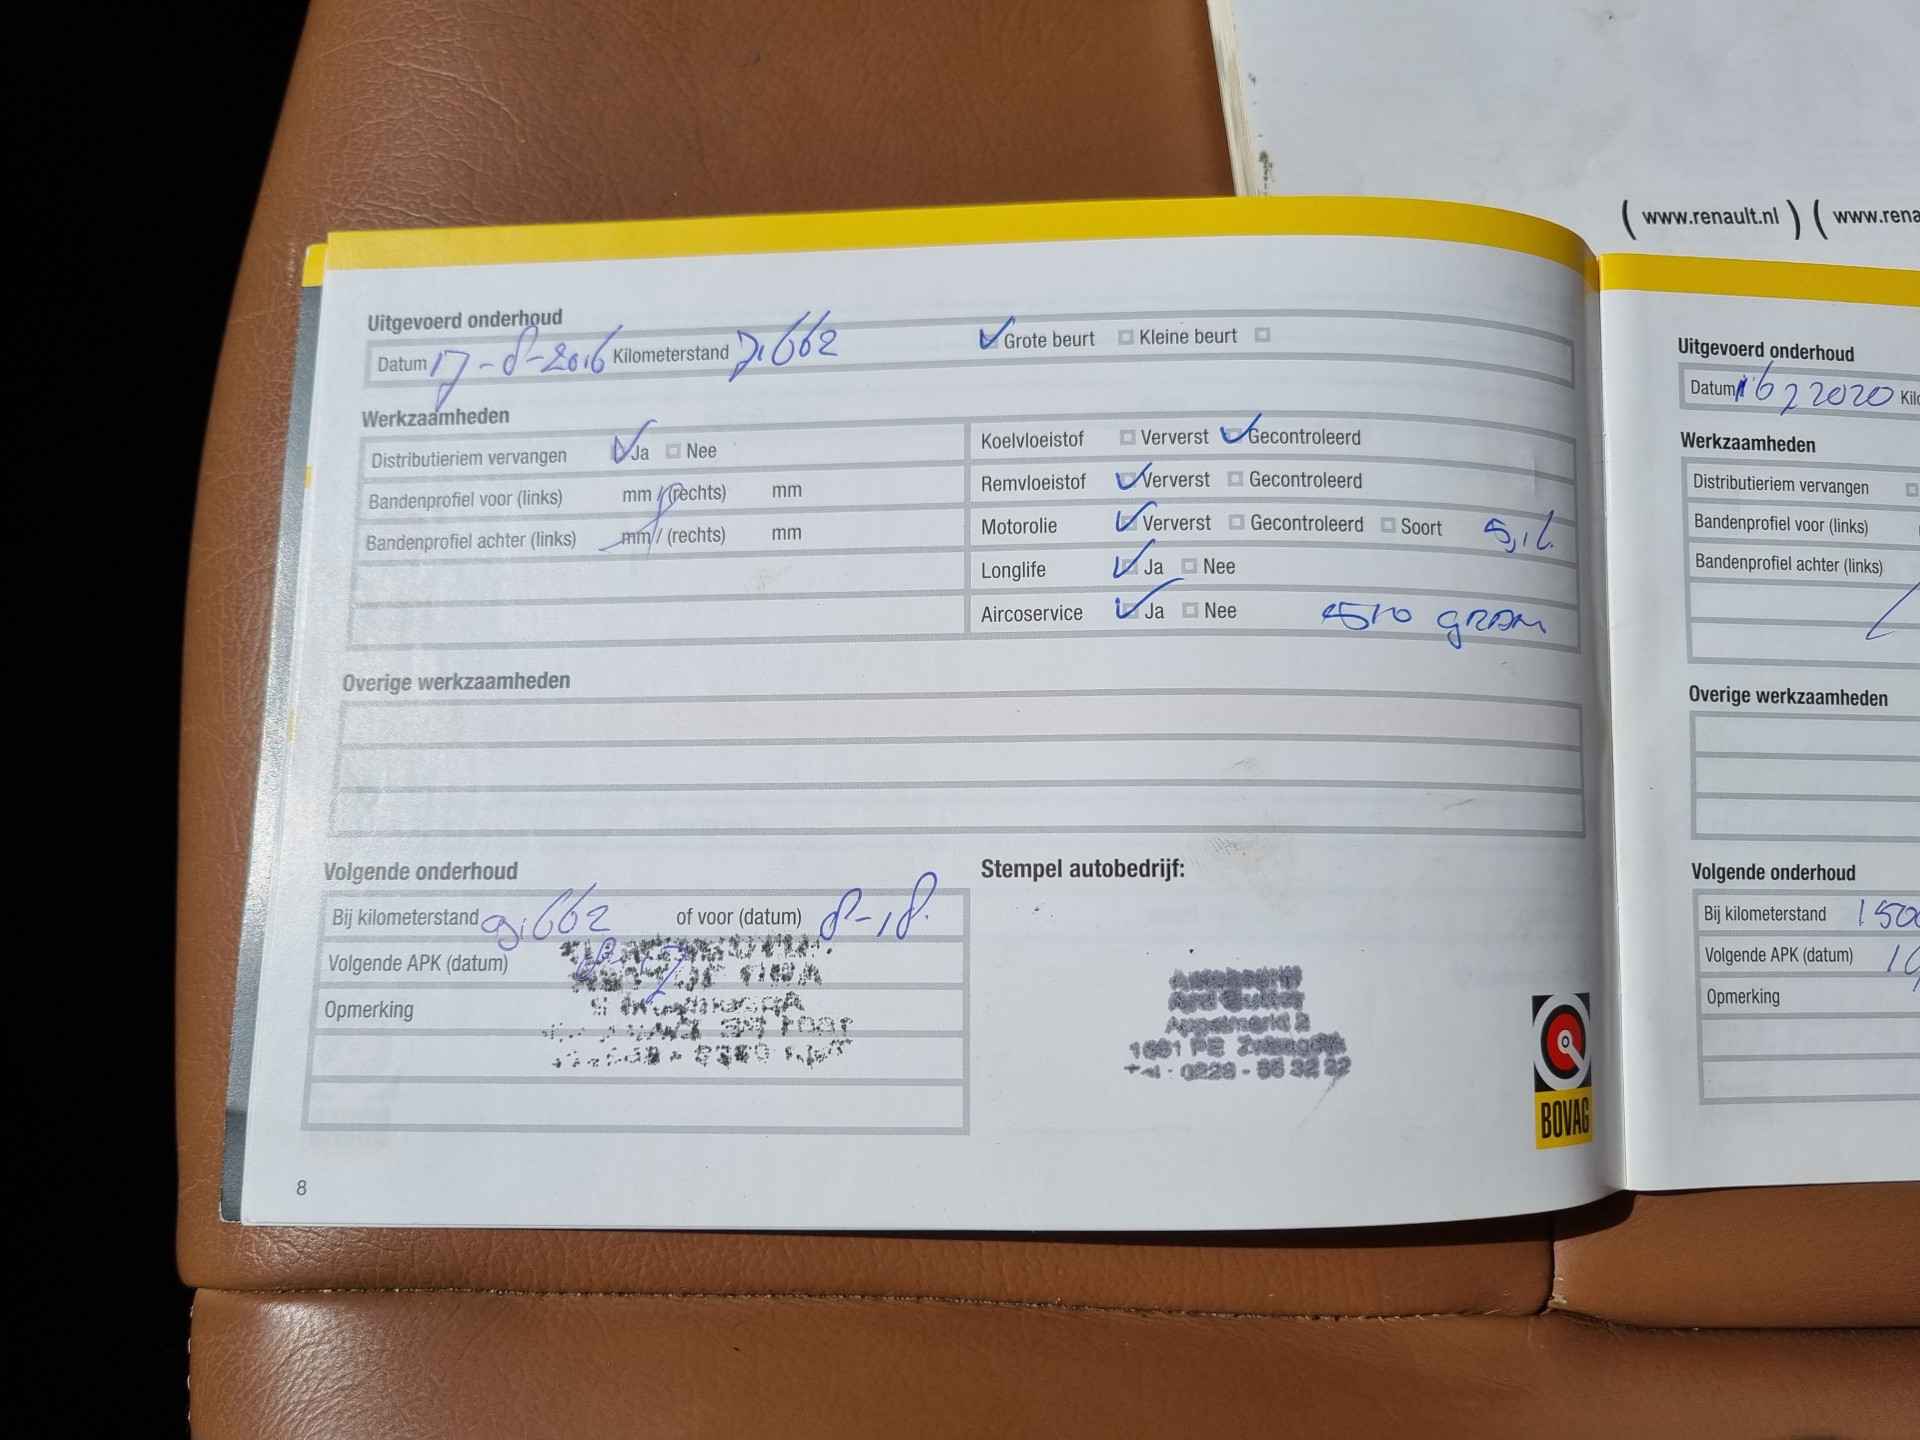 ( www.renault.nl ) ( www.rena
Uitgevoerd onderhoud
Datum 17-8-2016 Kilometerstand 71662 Grote beurt Kleine beurt
Werkzaamheden
Distributieriem vervangen Ja Nee
Bandenprofiel voor (links) mm / (rechts) mm
Bandenprofiel achter (links) mm / (rechts) mm
Koelvloeistof Ververst Gecontroleerd
Remvloeistof Ververst Gecontroleerd
Motorolie Ververst Gecontroleerd Soort
Longlife Ja Nee
Aircoservice Ja Nee 510 gram
Overige werkzaamheden
Volgende onderhoud
Bij kilometerstand 91662 of voor (datum) 8-18.
Volgende APK (datum)
Opmerking
Stempel autobedrijf:
Autobedrijf
Appelmarkt 2
1681 PE Zwaagdijk
Tel : 0228 - 56 32 22
BOVAG
8
Uitgevoerd onderhoud
Datum 2020 Kilo
Werkzaamheden
Distributieriem vervangen
Bandenprofiel voor (links)
Bandenprofiel achter (links)
Overige werkzaamheden
Volgende onderhoud
Bij kilometerstand 150
Volgende APK (datum)
Opmerking